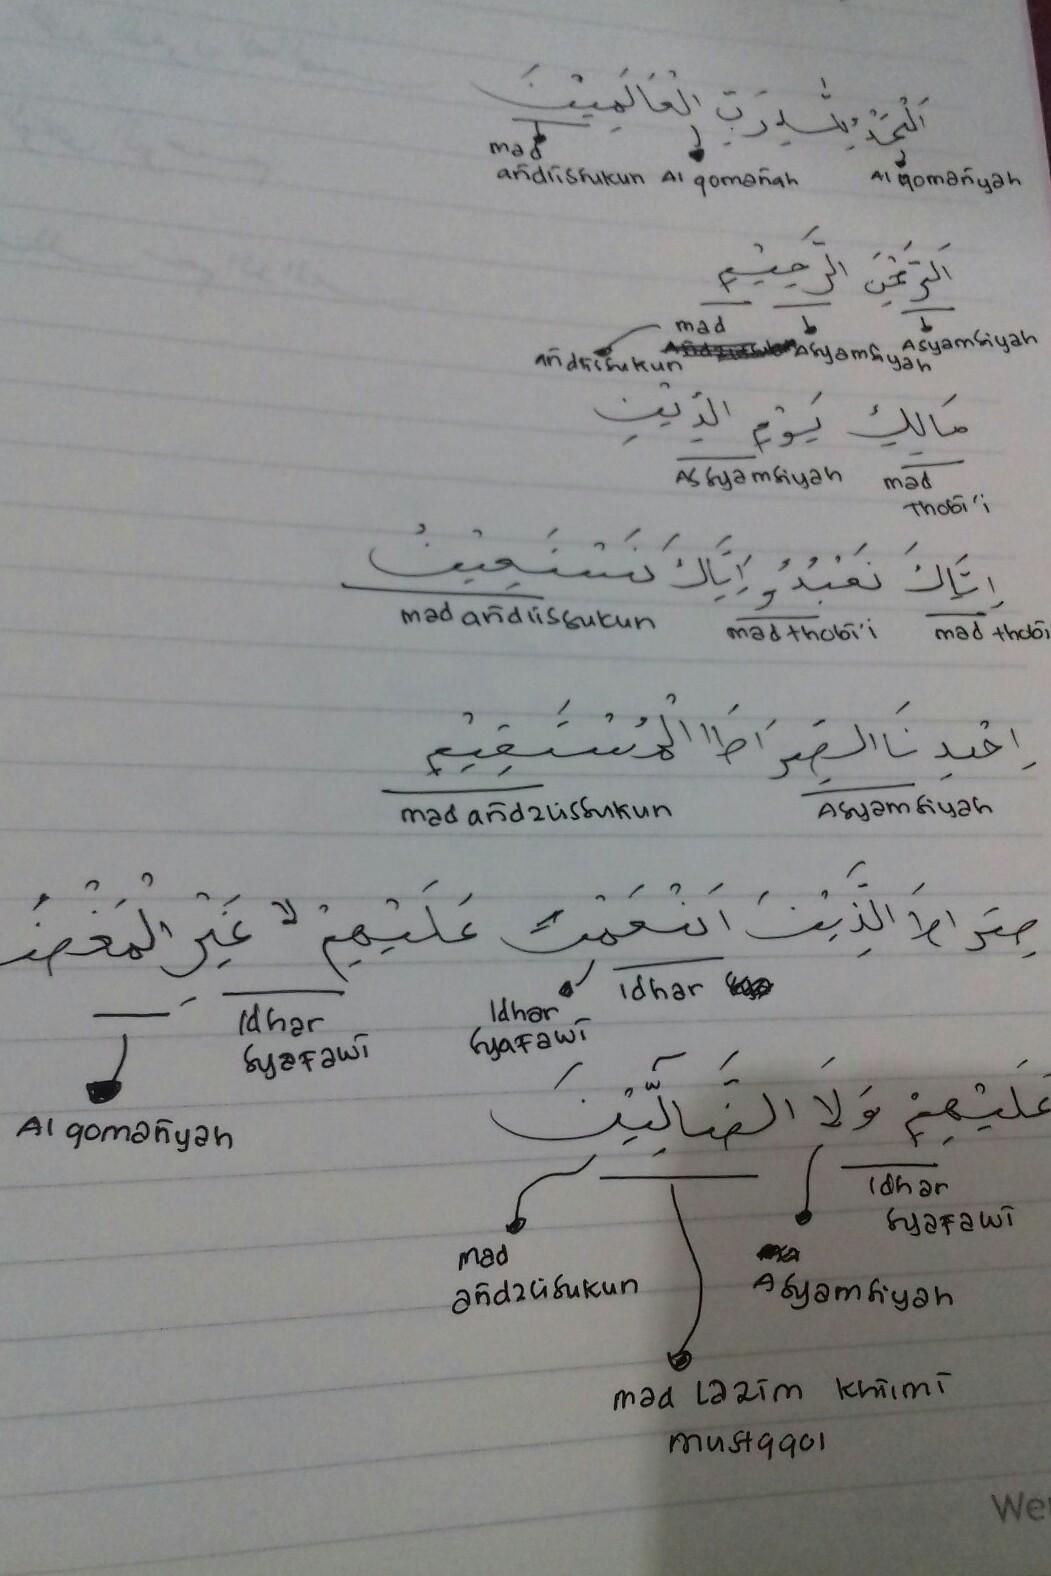 اَلْحَمْدُ لِلّٰهِ رَبِّ الْعَالَمِيْنَ
mad Al qomariyah
aridlissukun Al qomariah
اَلرَّحْمٰنِ الرَّحِيْمِ
mad Asyamsiyah Asyamsiyah
aridlissukun
مَالِكِ يَوْمِ الدِّيْنِ
Assyamsiyah mad
Thobi'i
اِيَّاكَ نَعْبُدُ وَاِيَّاكَ نَسْتَعِيْنُ
mad aridlissukun mad thobi'i mad thobi
اِهْدِنَا الصِّرَاطَ الْمُسْتَقِيْمِ
mad aridzlissukun Asyamsiyah
صِرَاطَ الَّذِيْنَ اَنْعَمْتَ عَلَيْهِمْ لا غَيْرِ الْمَغْضُ
Idhar syafawi Idhar syafawi Idhar
Al qomariyah
عَلَيْهِمْ وَلَا الضَّالِّيْنَ
Idhar syafawi
mad aridzlisukun Asyamsiyah
mad lazim khilmi
mustqqol
We